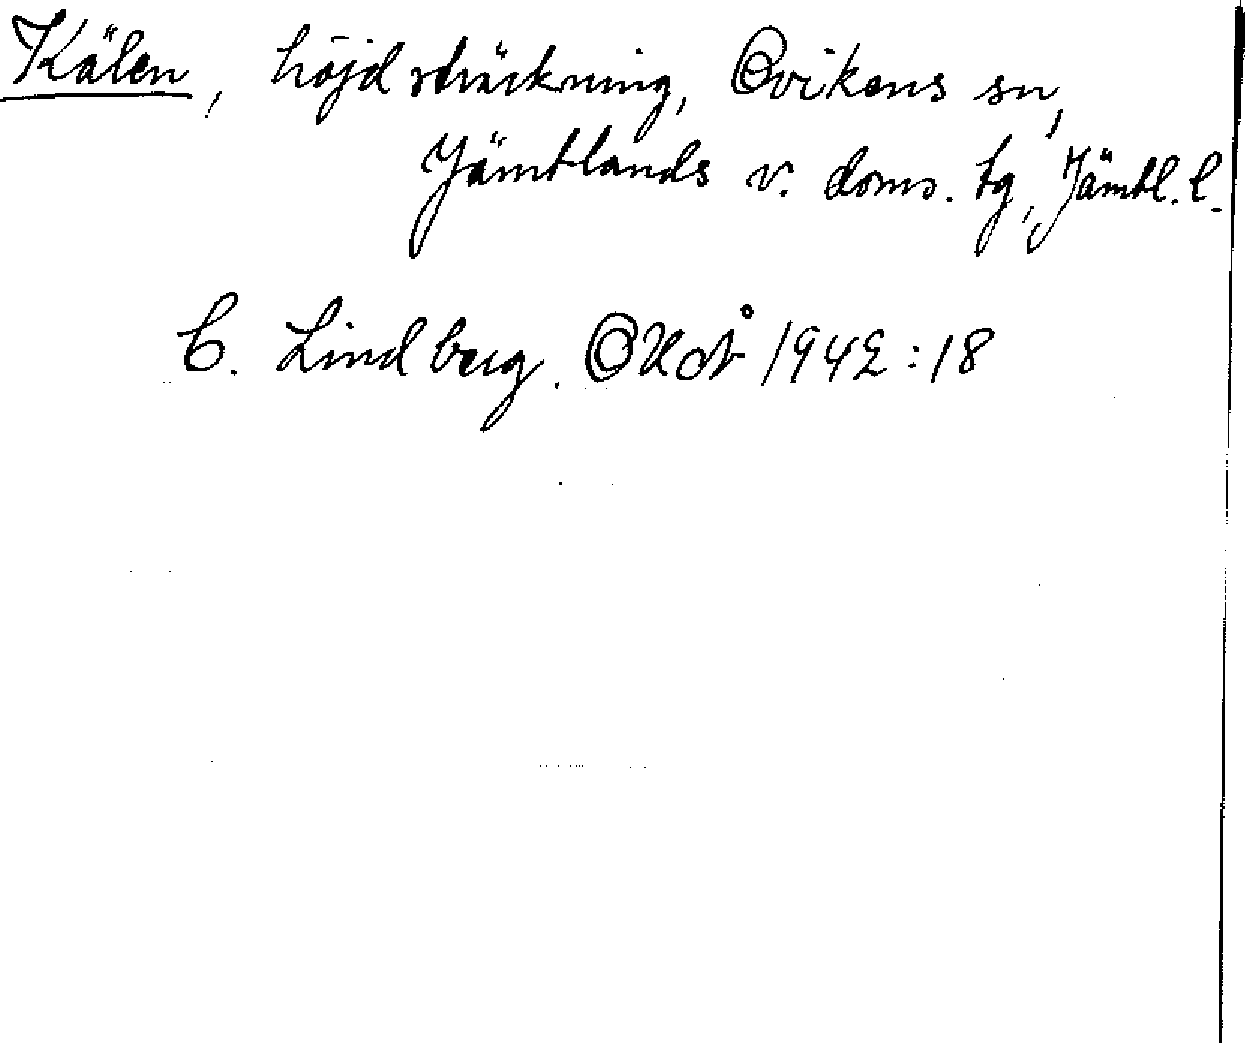 Kälen, höjdsträckning, Ovikens sn,
Jämtlands v. doms. tg, Jämtl. l.
C. Lindberg. OUoÅ 1942:18